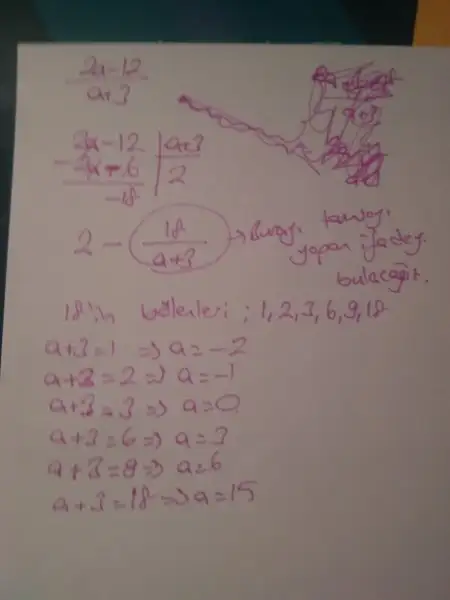 2a-12
a+3
2a-12 | a+3
2a+6 | 2
-18
2 - 18
a+3
→ Burayı tamsayı
yapan ifadeyi
bulacağız.
18'in bölenleri ; 1,2,3,6,9,18
a+3=1 => a=-2
a+3=2 => a=-1
a+3=3 => a=0
a+3=6 => a=3
a+3=9 => a=6
a+3=18 => a=15